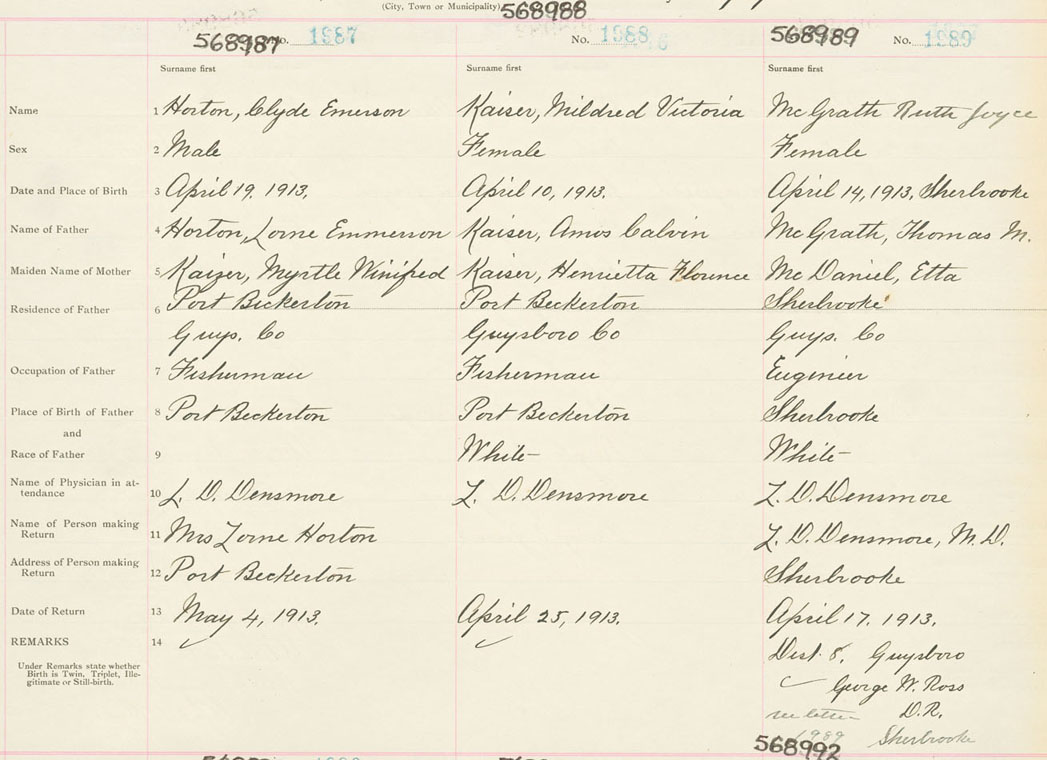 (City, Town or Municipality)
568988
568987 No. 1987
No. 1988
568989 No. 1989
Surname first Surname first Surname first
Name 1 Horton, Clyde Emerson Kaiser, Mildred Victoria McGrath Ruth Joyce
Sex 2 Male Female Female
Date and Place of Birth 3 April 19, 1913. April 10, 1913. April 14, 1913, Sherbrooke
Name of Father 4 Horton, Lorne Emmerson Kaiser, Amos Calvin McGrath, Thomas M.
Maiden Name of Mother 5 Kaizer, Myrtle Winifred Kaiser, Henrietta Florence McDaniel, Etta
Residence of Father 6 Port Beckerton Port Beckerton Sherbrooke
Guys. Co Guysboro Co Guys. Co
Occupation of Father 7 Fisherman Fisherman Engineer
Place of Birth of Father 8 Port Beckerton Port Beckerton Sherbrooke
and
Race of Father 9 White White
Name of Physician in at-
tendance 10 L. D. Densmore L. D. Densmore L. D. Densmore
Name of Person making
Return 11 Mrs Lorne Horton L. D. Densmore, M.D.
Address of Person making
Return 12 Port Beckerton Sherbrooke
Date of Return 13 May 4, 1913. April 25, 1913. April 17. 1913.
REMARKS 14
Under Remarks state whether
Birth is Twin, Triplet, Ille-
gitimate or Still-birth.
Dist. 8, Guysboro
George W. Ross
see letter D.R.
1989 Sherbrooke
568992